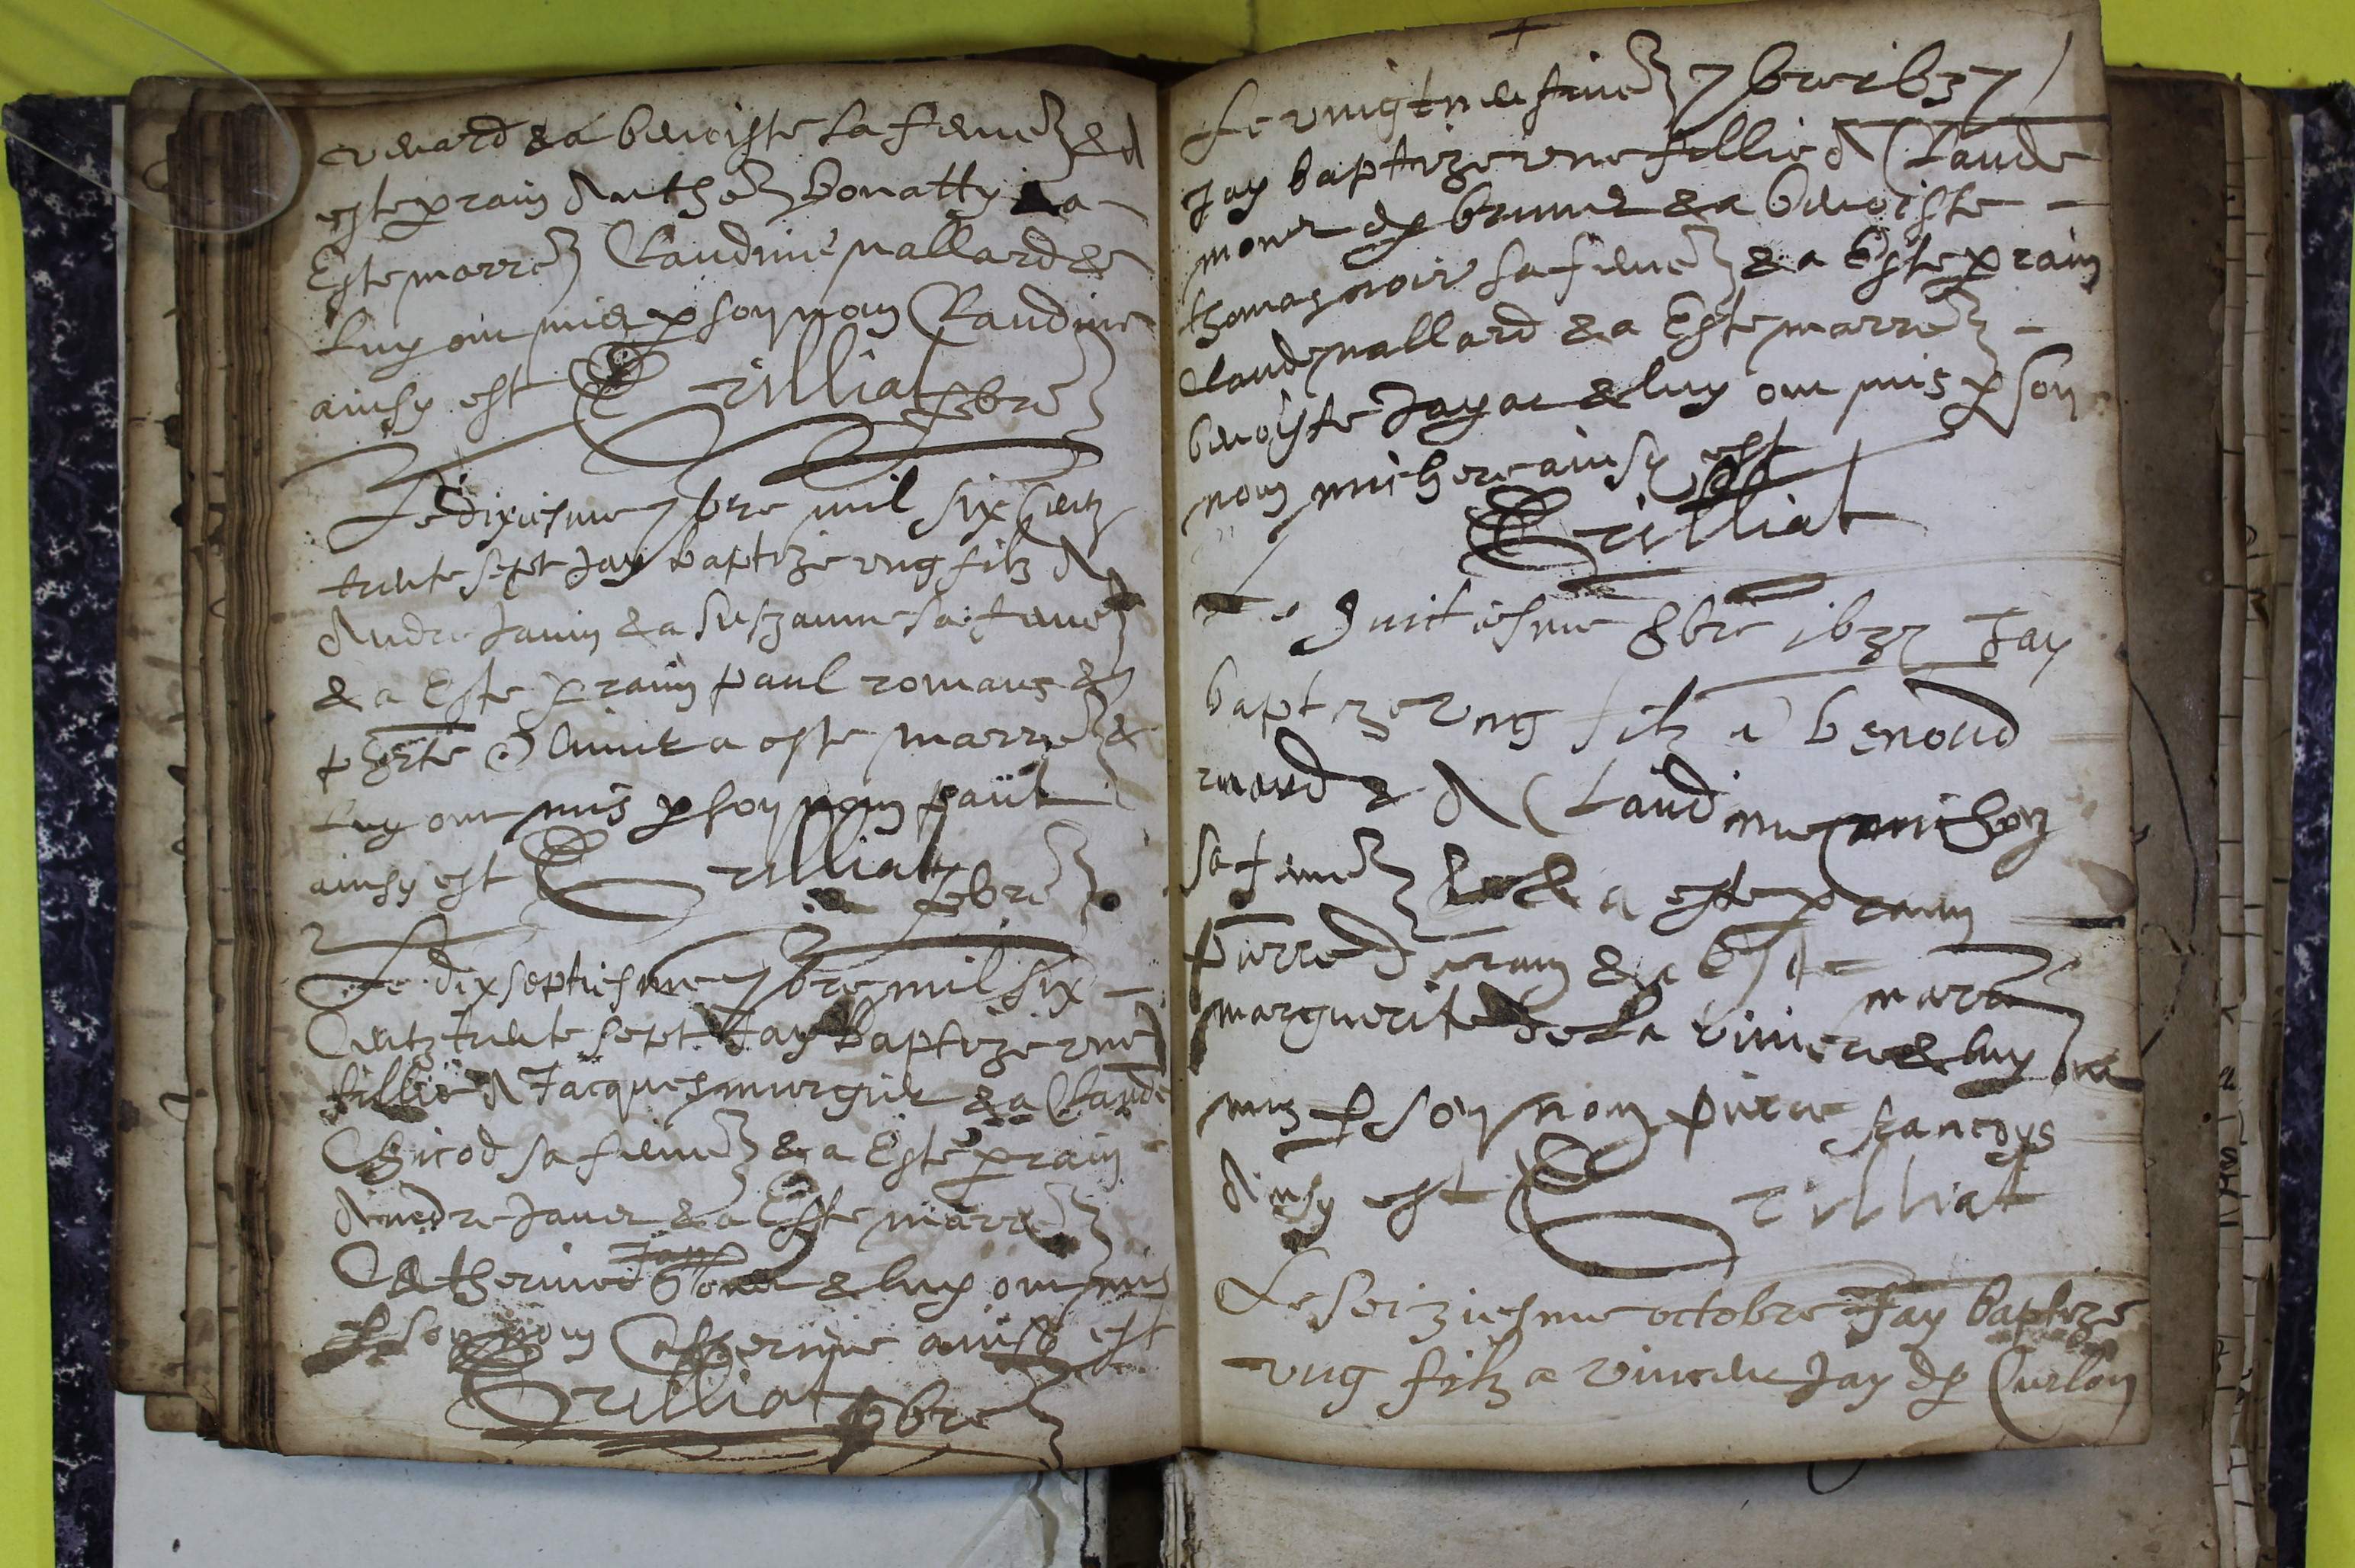 & a benoiste sa femme & a
este parain Anthe bonatty & a
Este marre Claudine mallard &
luy ont mis p son nom Claudine
ainsy est Trilliat pbre
Le dixiesme 7bre mil six Centz
trente sept Jay baptize ung filz A
Andre Janin & a Suszanne sa femme
& a Este parain paul romans &
a este marre &
luy ont mis p son nom paul
ainsy est Trilliat pbre
Le dix septiesme 7bre mil six
Centz trente sept Jay baptize une
fillie A Jacques murgier & a Claude
Chicod sa femme & a Este parain
Andre Janet & a Este marre
Catherine & luy ont mis
p son nom Catherine ainsy est
Trilliat pbre
Le vingtneufiesme 7bre 1637
Jay baptize une fillie A Claude
monet de brunet & a benoiste
thomas noir sa femme & a Este parain
Claude mallard & a Este marre
benoiste Jayat & luy ont mis p son
nom ainsy est
Trilliat
Le huitiesme 8bre 1637 Jay
baptize ung filz a benoud
& A Claudine michoz
sa femme & a este parain
pierre & a Este marre
marguerite de la & luy ont
mis p son nom pierre francoys
Ainsy est Trilliat
Le seiziesme octobre Jay baptize
ung filz a vincent Jay de Curlon